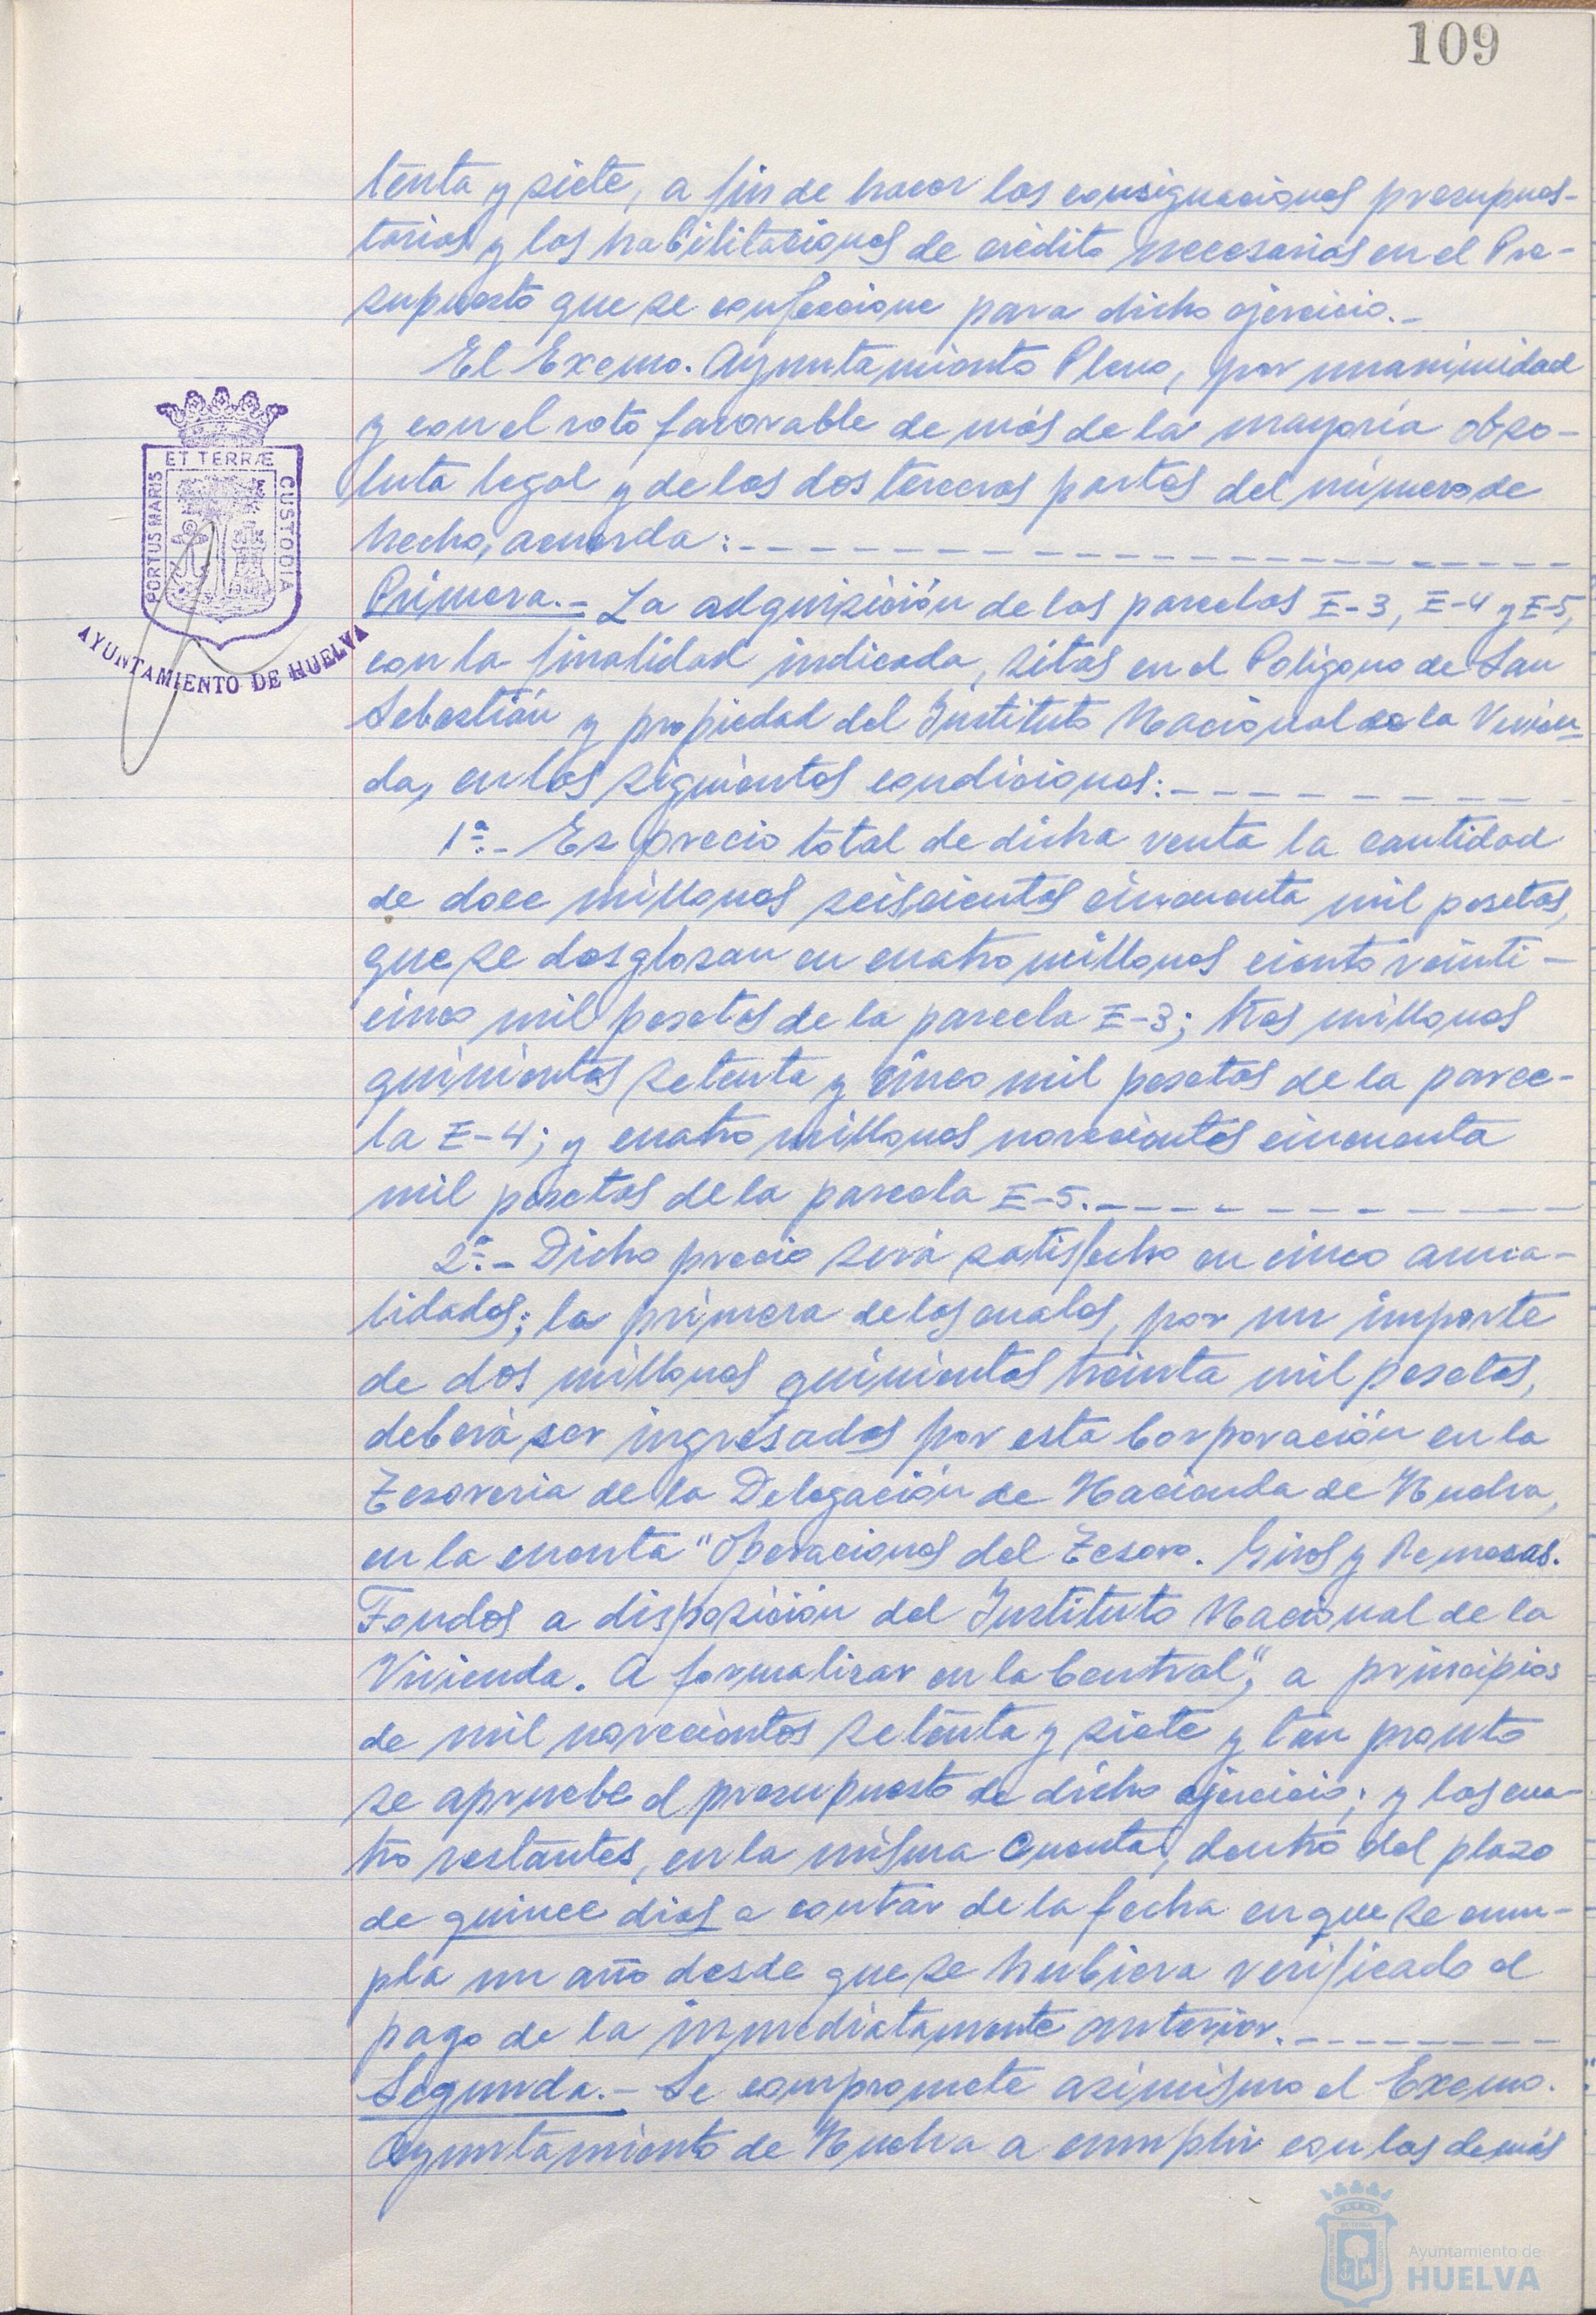 109
tenta y siete, a fin de hacer las consignaciones presupues-
tarias y las habilitaciones de crédito necesarias en el Pre-
supuesto que se confeccione para dicho ejercicio.-
El Excmo. Ayuntamiento Pleno, por unanimidad
y con el voto favorable de más de la mayoría abso-
luta legal y de las dos terceras partes del número de
hecho, acuerda:
Primero.- La adquisición de las parcelas E-3, E-4 y E-5,
con la finalidad indicada, sitas en el Polígono de San
Sebastián y propiedad del Instituto Nacional de la Vivien-
da, en las siguientes condiciones:
1ª.- Es precio total de dicha venta la cantidad
de doce millones seiscientas cincuenta mil pesetas,
que se desglosan en cuatro millones ciento veinti-
cinco mil pesetas de la parcela E-3; tres millones
quinientas setenta y cinco mil pesetas de la parce-
la E-4; y cuatro millones novecientas cincuenta
mil pesetas de la parcela E-5.
2ª.- Dicho precio será satisfecho en cinco anua-
lidades; la primera de las cuales, por un importe
de dos millones quinientas treinta mil pesetas,
deberá ser ingresadas por esta Corporación en la
Tesorería de la Delegación de Hacienda de Huelva,
en la cuenta "Operaciones del Tesoro. Giros y Remesas.
Fondos a disposición del Instituto Nacional de la
Vivienda. A formalizar en la Central", a principios
de mil novecientos setenta y siete y tan pronto
se apruebe el presupuesto de dicho ejercicio; y las cua-
tro restantes, en la misma cuenta, dentro del plazo
de quince días a contar de la fecha en que se cum-
pla un año desde que se hubiera verificado el
pago de la inmediatamente anterior.
Segundo.- Se compromete asimismo el Excmo.
Ayuntamiento de Huelva a cumplir con las demás
PORTUS MARIS
ET TERRÆ
CUSTODIA
AYUNTAMIENTO DE HUELVA
Ayuntamiento de
HUELVA